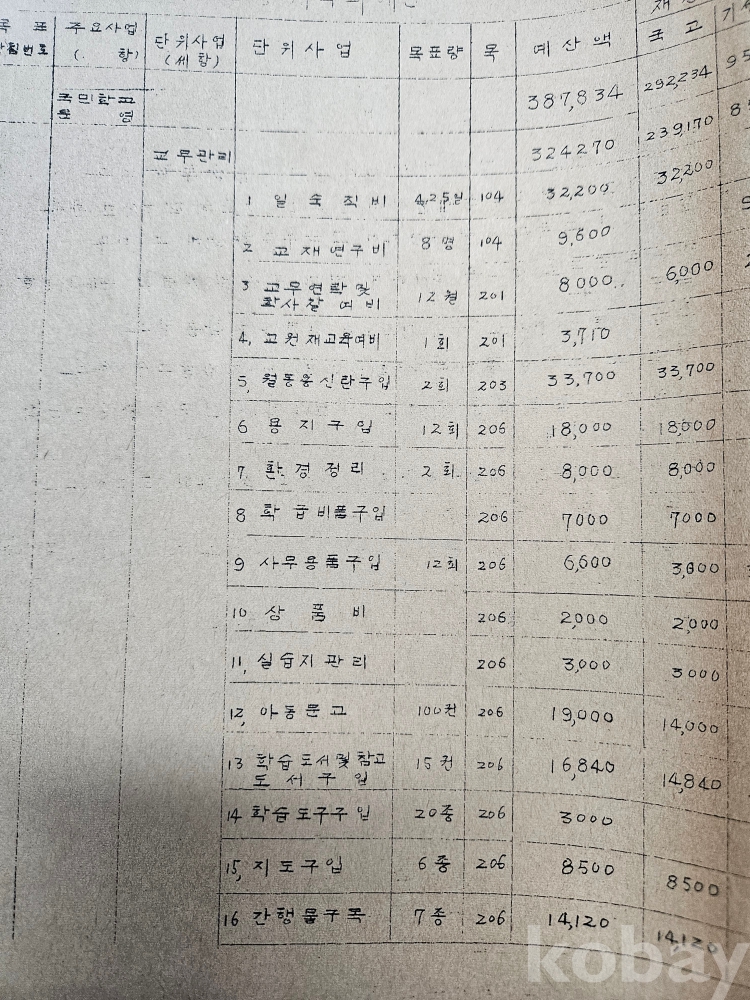 주요사업 단위사업 단위사업 목표량 목 예산액 국고
번호 ( . 항) (세항)
국민학교 387,834 292,234
운영
교무관리 324270 239,170
1 일숙직비 4,2,5일 104 32,200 32,200
2 교재연구비 8명 104 9,600
3 교무연락및 12월 201 8000 6,000
학사찰여비
4, 교원재교육여비 1회 201 3,710
5, 월동용신탄구입 2회 203 33,700 33,700
6 용지구입 12회 206 18,000 18,000
7, 환경정리 2회 206 8,000 8,000
8 학급비품구입 206 7000 7000
9 사무용품구입 12회 206 6,600 3,600
10 상품비 206 2,000 2,000
11, 실습지관리 206 3,000 3000
12, 아동문고 100권 206 19,000 14,000
13 학습도서및참고 15권 206 16,840 14,840
도서구입
14 학습도구구입 20종 206 3000
15, 지도구입 6종 206 8500 8500
16 간행물구독 7종 206 14,120 14,120
kobay